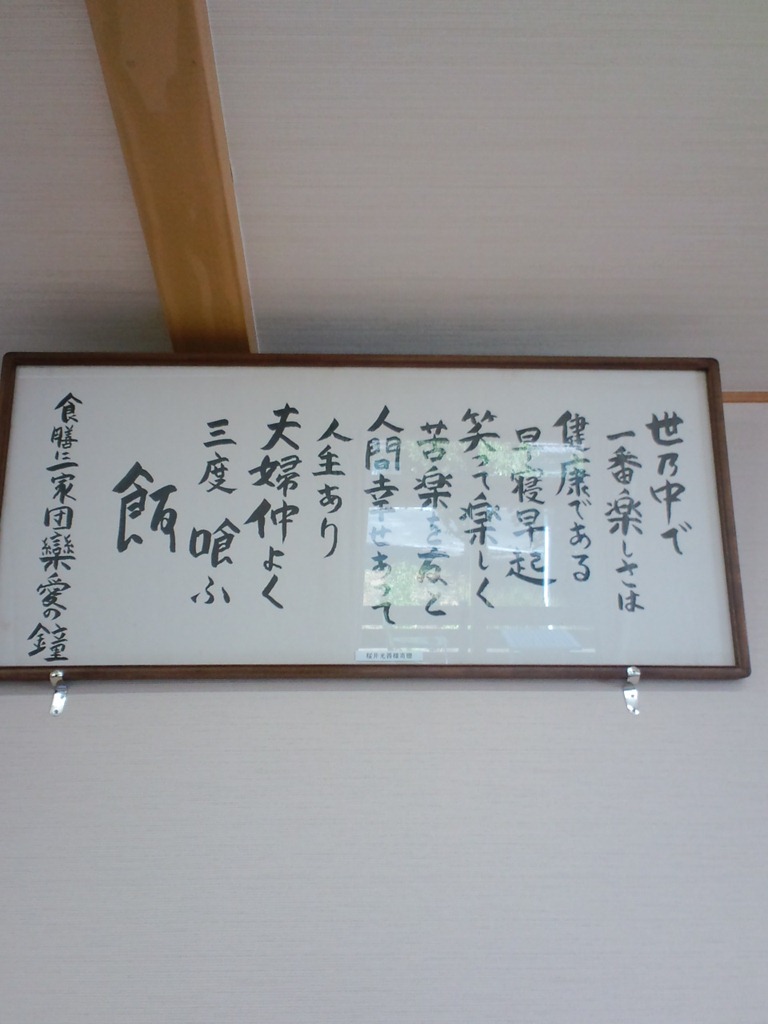 世乃中で
一番楽しさは
健康である
早寝早起
笑って楽しく
苦楽を友と
人間幸せあって
人生あり
夫婦仲よく
三度喰ふ
飯
食膳に一家団欒愛の鐘